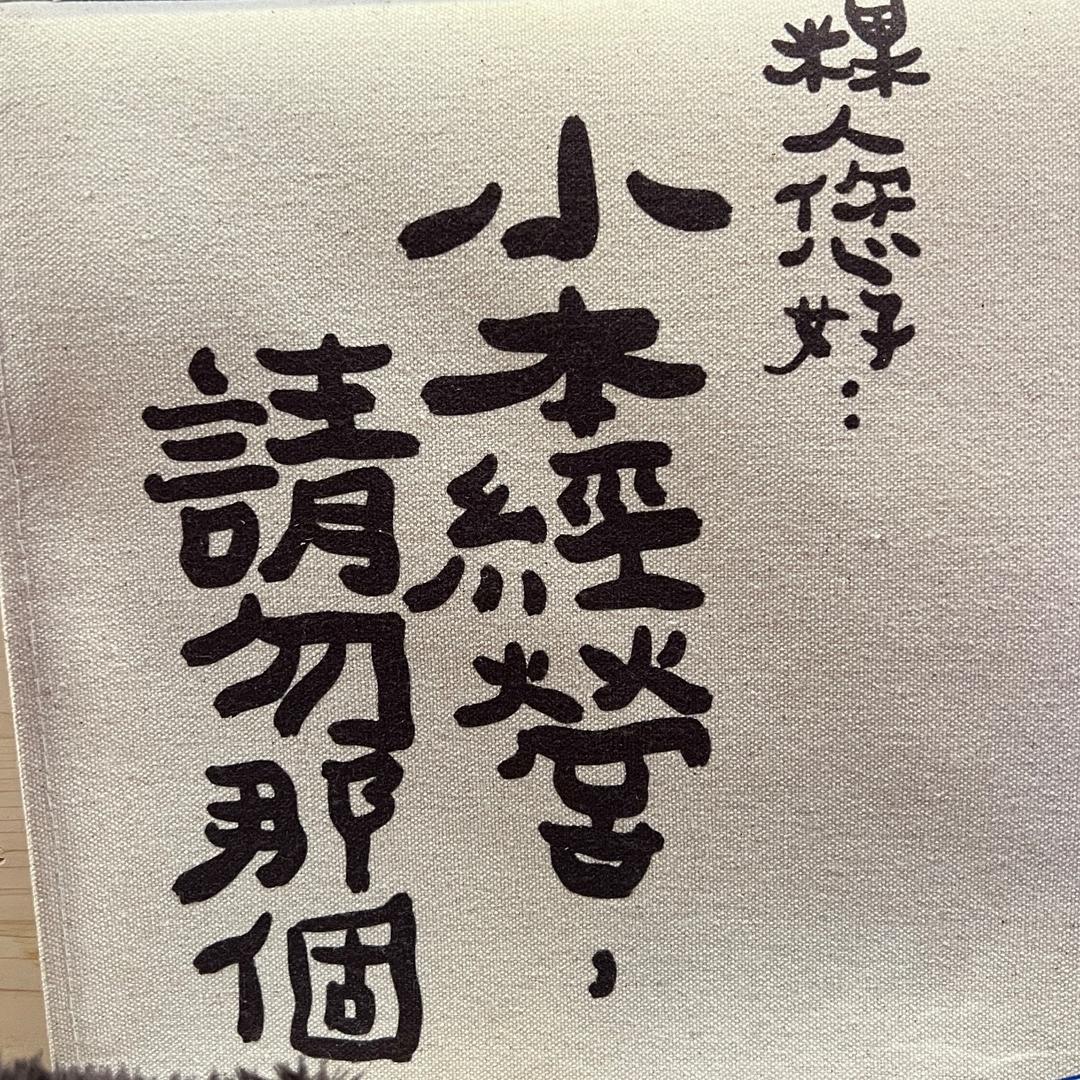 粿人您好：
小本經營，
請勿那個